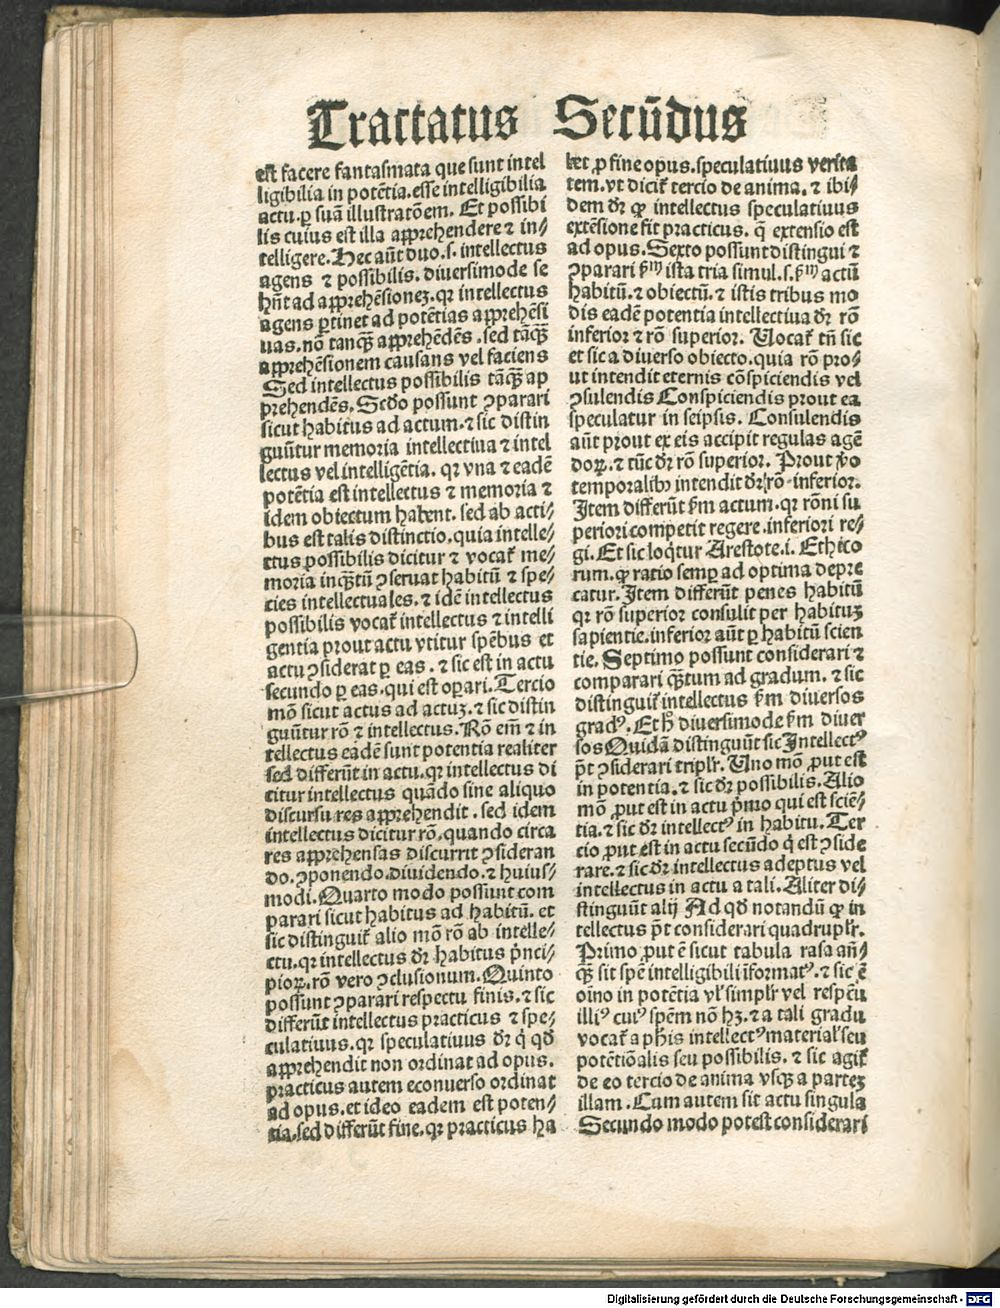 Tractatus Secūdus
est facere fantasmata que sunt intel
ligibilia in potētia. esse intelligibilia
actu. ꝑ suā illustratōem. Et possibi
lis cuius est illa apprehendere ⁊ in⸗
telligere. Hec aūt duo. s. intellectus
agens ⁊ possibilis. diuersimode se
hn̄t ad apprehēsioneꝫ. qꝛ intellectus
agens ꝑtinet ad potētias apprehēsi
uas. nō tanqꝫ̄ apprehēdēs. sed tāqꝫ̄
apprehēsionem causans vel faciens
Sed intellectus possibilis tāqꝫ̄ ap
prehendēs. Scd̄o possunt ꝯparari
sicut habitus ad actum. ⁊ sic distin
guūtur memoria intellectiua ⁊ intel
lectus vel intelligētia. qꝛ vna ⁊ eadē
potētia est intellectus ⁊ memoria ⁊
idem obiectum habent. sed ab acti⸗
bus est talis distinctio. quia intelle⸗
ctus possibilis dicitur ⁊ vocat̄ me⸗
moria inqꝫ̄tū ꝯseruat habitū ⁊ spe⸗
cies intellectuales. ⁊ idē intellectus
possibilis vocat̄ intellectus ⁊ intelli
gentia prout actu vtitur spēbus et
actu ꝯsiderat ꝑ eas. ⁊ sic est in actu
secundo ꝑ eas. qui est oꝑari. Tercio
mō sicut actus ad actuꝫ. ⁊ sic distin
guūtur rō ⁊ intellectus. Rō em̄ ⁊ in
tellectus eadē sunt potentia realiter
sed differūt in actu. qꝛ intellectus di
citur intellectus quādo sine aliquo
discursu res apprehendit. sed idem
intellectus dicitur rō. quando circa
res apprehensas discurrit ꝯsideran
do. ꝯponendo. diuidendo. ⁊ huius⸗
modi. Quarto modo possunt com
parari sicut habitus ad habitū. et
sic distinguit̄ alio mō rō ab intelle⸗
ctu. qꝛ intellectus dr̄ habitus pͥnci⸗
pioꝝ. rō vero ꝯclusionum. Quinto
possunt ꝯparari respectu finis. ⁊ sic
differūt intellectus practicus ⁊ spe⸗
culatiuus. qꝛ speculatiuus dr̄ qͥ qd̄
apprehendit non ordinat ad opus.
practicus autem econuerso ordinat
ad opus. et ideo eadem est poten⸗
tia. sed differūt fine. qꝛ practicus ha
bet ꝓ fine opus. speculatiuus verita
tem. vt dicit̄ tercio de anima. ⁊ ibi⸗
dem dr̄ ꝙ intellectus speculatiuus
extēsione fit practicus. q̄ extensio est
ad opus. Sexto possunt distingui ⁊
ꝯparari ẜm ista tria simul. s. ẜm actū
habitū. ⁊ obiectū. ⁊ istis tribus mo
dis eadē potentia intellectiua dr̄ rō
inferior ⁊ rō superior. Uocat̄ tn̄ sic
et sic a diuerso obiecto. quia rō pro⸗
ut intendit eternis cōspiciendis vel
ꝯsulendis Conspiciendis prout ea
speculatur in seipsis. Consulendis
aūt prout ex eis accipit regulas agē
doꝝ. ⁊ tūc dr̄ rō superior. Prout v̊o
temporalibꝫ intendit dr̄ rō inferior.
Item differūt ẜm actum. qꝛ rōni su
periori competit regere. inferiori re⸗
gi. Et sic loqͥtur Arestote. i. Ethico
rum. ꝙ ratio semꝑ ad optima depre
catur. Item differūt penes habitū
qꝛ rō superior consulit per habituꝫ
sapientie. inferior aūt ꝑ habitū scien
tie. Septimo possunt considerari ⁊
comparari qꝫ̄tum ad gradum. ⁊ sic
distinguit̄ intellectus ẜm diuersos
gradꝰ. Et hͦ diuersimode ẜm diuer
sos Quidā distinguūt sic Intellectꝰ
pt̄ ꝯsiderari triplr̄. Uno mō ꝓut est
in potentia. ⁊ sic dr̄ possibilis. Alio
mō ꝓut est in actu pͥmo qui est sciē⸗
tia. ⁊ sic dr̄ intellectꝰ in habitu. Ter
cio ꝓut est in actu secūdo qͥ est ꝯside
rare. ⁊ sic dr̄ intellectus adeptus vel
intellectus in actu a tali. Aliter di⸗
stinguūt alij Ad qd̄ notandū ꝙ in
tellectus pt̄ considerari quadruplr̄.
Primo ꝓut ē sicut tabula rasa an̄⸗
qꝫ̄ sit spē intelligibili īformatꝰ. ⁊ sic ē
oīno in potētia vl̓ simplr̄ vel respēu
illiꝰ cuiꝰ spēm nō hꝫ. ⁊ a tali gradu
vocat̄ a ph̄is intellectꝰ material̓ seu
potētiōalis seu possibilis. ⁊ sic agit̄
de eo tercio de anima vsqꝫ a parteꝫ
illam. Cum autem sit actu singula
Secundo modo potest considerari
Digitalisierung gefördert durch die Deutsche Forschungsgemeinschaft - DFG